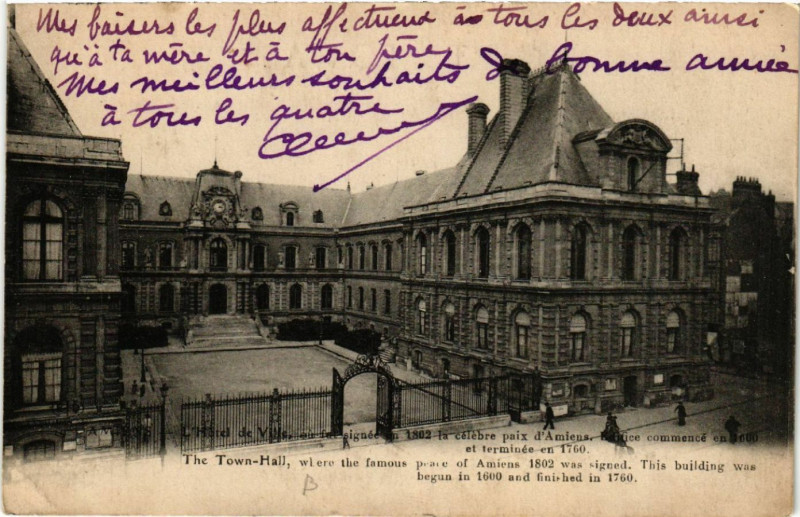 Mes baisers les plus affectueux à tous les deux ainsi
qu'à ta mère et à ton père
Mes meilleurs souhaits de bonne année
à tous les quatre
L'Hôtel de Ville, où fut signée en 1802 la célèbre paix d'Amiens. Edifice commencé en 1600
et terminée en 1760.
The Town-Hall, where the famous peace of Amiens 1802 was signed. This building was
begun in 1600 and finished in 1760.
B